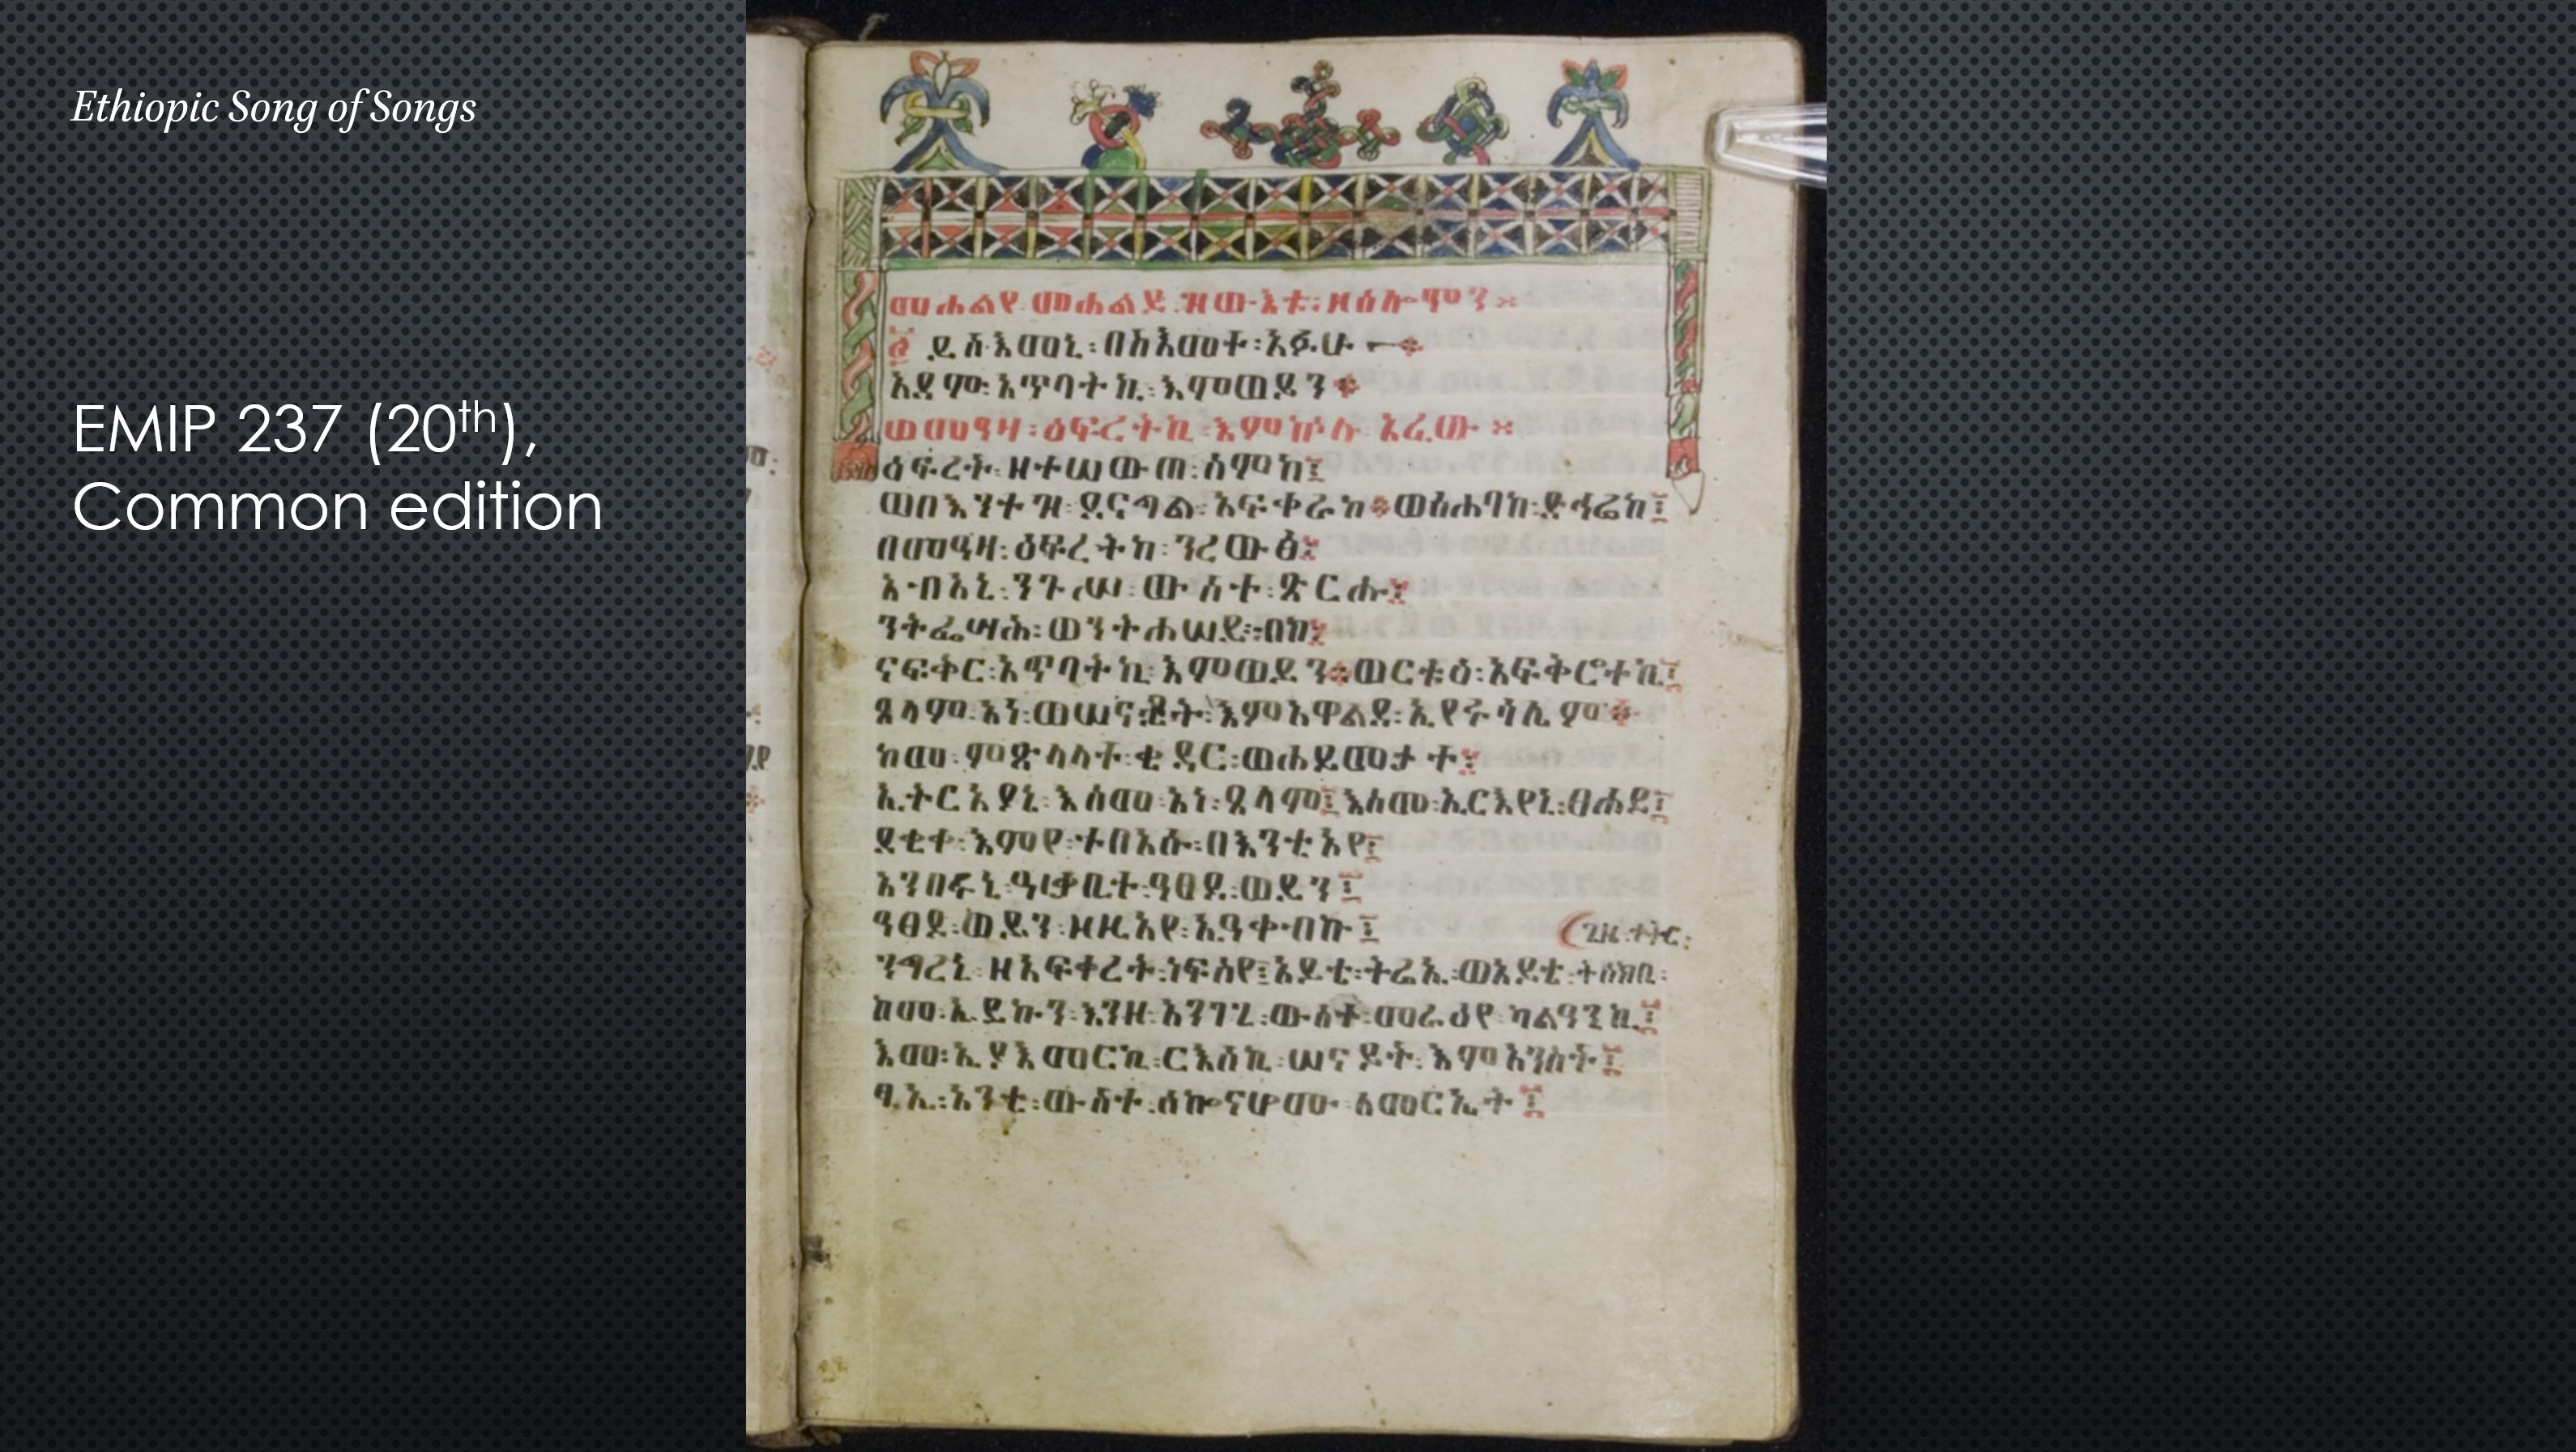 Ethiopic Song of Songs
EMIP 237 (20th),
Common edition
መሐልየ መሐልይ ዝውእቱ፡ ዘሰሎሞን ፨
፩ ይስእመኒ፡ በአእመተ፡ አፉሁ
አዳም፡ አጥባትኪ፡ እምወይን
ወመዓዛ፡ ዕፍረትኪ፡ እምኵሉ አፈው ፨
ዕፍረት፡ ዘተሠውጠ፡ ስምከ፤
ወበእንተዝ፡ ደናግል፡ አፍቀራከ ወስሐባከ፡ ድኅሬከ፤
በመዓዛ፡ ዕፍረትከ፡ ንረውፅ፤
አብአኒ፡ ንጉሠ፡ ውስተ፡ ጽርሑ፤
ንትፌሣሕ፡ ወንትሐሠይ፡ በከ፤
ናፍቅር፡ አጥባትኪ፡ እምወይን ወርቱዕ፡ አፍቅሮተኪ፤
ጸላም፡ አነ፡ ወሠናይት፡ እምአዋልደ፡ ኢየሩሳሌም
ከመ፡ ምጽላላተ፡ ቄዳር፡ ወሐይመታት፤
ኢትርአያኒ፡ እስመ፡ አነ፡ ጸላም፤ እስመ፡ ኢርእየኒ፡ ፀሐይ፤
ደቂቀ፡ እምየ፡ ተበአሱ፡ በእንቲአየ፤
አንበሩኒ፡ ዓቃቢተ፡ ዓፀደ፡ ወይን፤
ዓፀደ፡ ወይን፡ ዘዚአየ፡ ኢዓቀብኩ፤
ንግረኒ፡ ዘአፍቀረት፡ ነፍስየ፤ አይቴ፡ ትሬኢ፡ ወአይቴ፡ ትሰክብ፡
ጊዜ፡ ቀትር፡
ከመ፡ ኢይኩን፡ እንዘ፡ እንገጊ፡ ውስተ፡ መራዕየ ካልዓኒከ፤
እመ፡ ኢያእመርኪ፡ ርእሰኪ፡ ሠናይት፡ እምአንስት፤
ፃኢ፡ አንቲ፡ ውስተ፡ ሰኰናሆሙ ለመርኤት፤